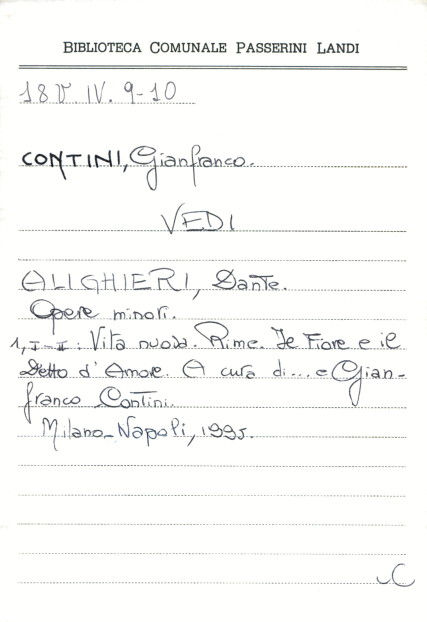 BIBLIOTECA COMUNALE PASSERINI LANDI
18 V IV. 9-10
CONTINI, Gianfranco.
VEDI
ALIGHIERI, Dante.
Opere minori.
1, I-II: Vita nuova. Rime. Il Fiore e il
Detto d'Amore. A cura di... e Gian-
franco Contini.
Milano-Napoli, 1995.